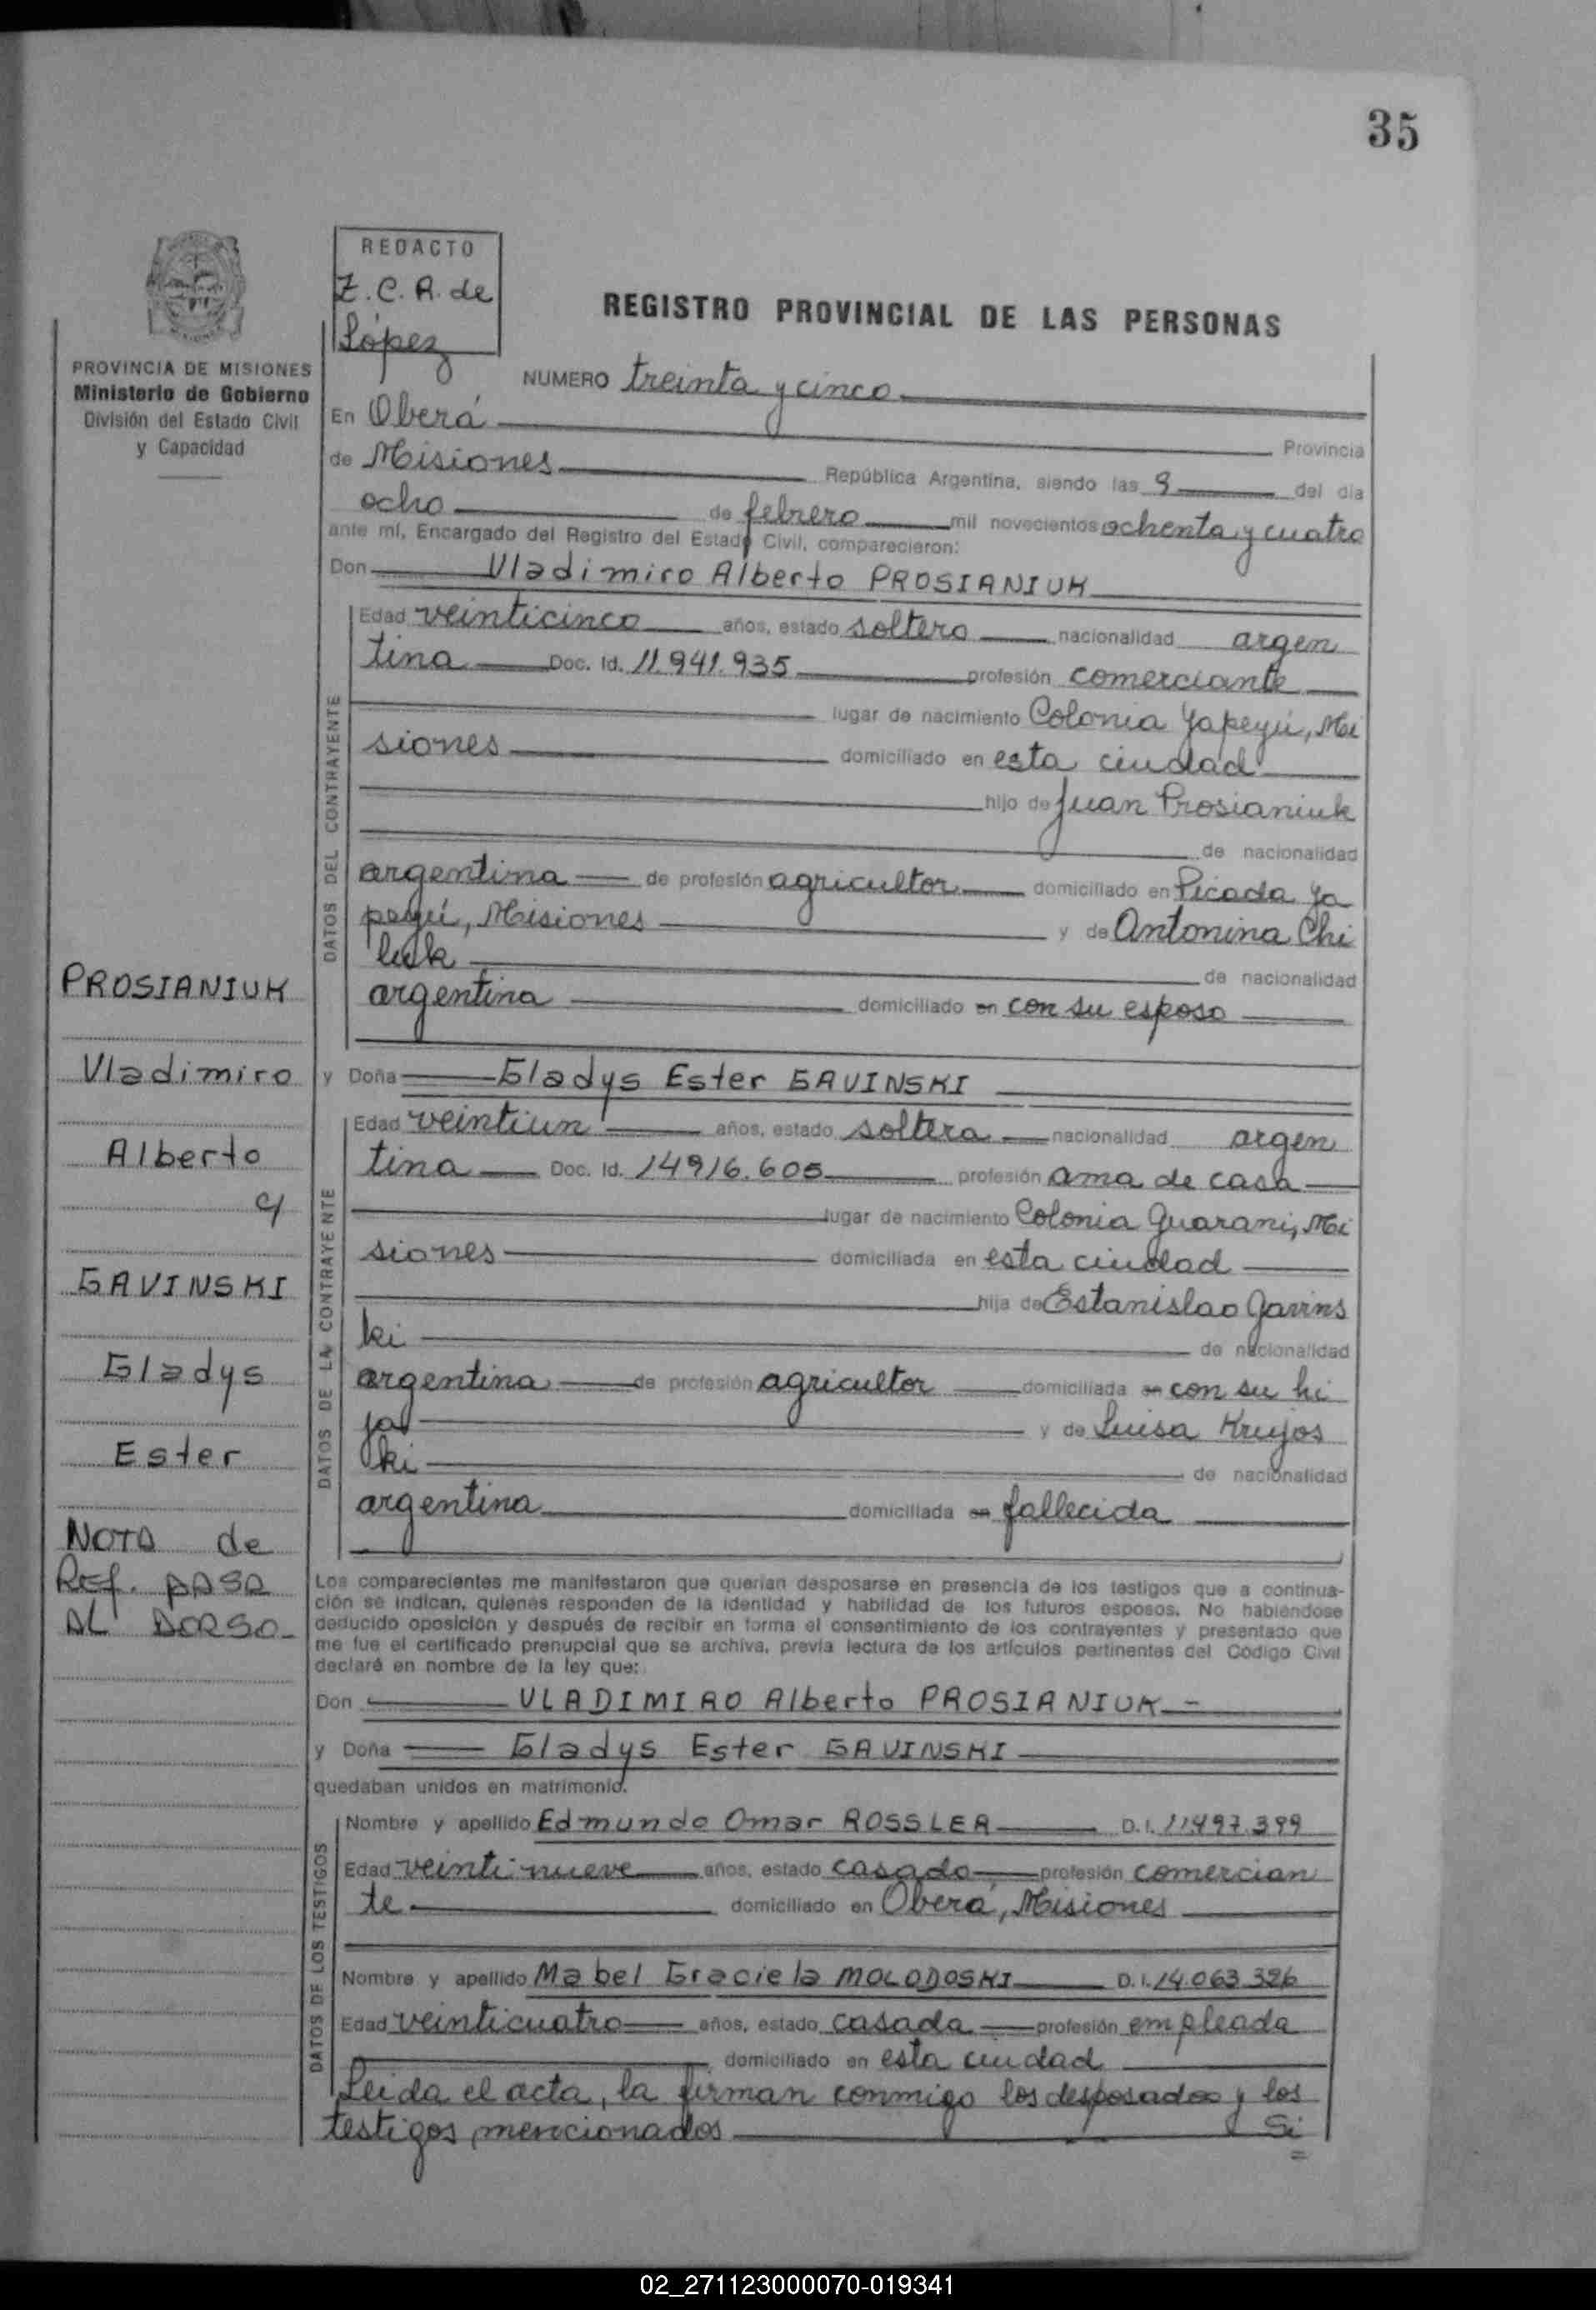 35
REDACTO
Z. C. R. de
López
REGISTRO PROVINCIAL DE LAS PERSONAS
PROVINCIA DE MISIONES
Ministerio de Gobierno
División del Estado Civil
y Capacidad
NUMERO treinta y cinco
En Oberá Provincia
de Misiones República Argentina, siendo las 9 del día
ocho de febrero mil novecientos ochenta y cuatro
ante mí, Encargado del Registro del Estado Civil, comparecieron:
Don Vladimiro Alberto PROSIANIUK
DATOS DEL CONTRAYENTE
Edad veinticinco años, estado soltero nacionalidad argen
tina Doc. Id. 11.941.935 profesión comerciante
lugar de nacimiento Colonia Yapeyú, Mi
siones domiciliado en esta ciudad
hijo de Juan Prosianiuk
de nacionalidad
argentina de profesión agricultor domiciliado en Picada Ya
peyú, Misiones y de Antonina Chi
luk de nacionalidad
argentina domiciliado en con su esposo
y Doña Gladys Ester GAVINSKI
DATOS DE LA CONTRAYENTE
Edad veintiun años, estado soltera nacionalidad argen
tina Doc. Id. 14916.605 profesión ama de casa
lugar de nacimiento Colonia Guarani, Mi
siones domiciliada en esta ciudad
hija de Estanislao Gavins
ki de nacionalidad
argentina de profesión agricultor domiciliada en con su hi
ja y de Luisa Krujos
ki de nacionalidad
argentina domiciliada en fallecida
PROSIANIUK
Vladimiro
Alberto
c/
GAVINSKI
Gladys
Ester
NOTA de
Ref. PASA
AL DORSO
Los comparecientes me manifestaron que querían desposarse en presencia de los testigos que a continua-
ción se indican, quienes responden de la identidad y habilidad de los futuros esposos. No habiendose
deducido oposición y después de recibir en forma el consentimiento de los contrayentes y presentado que
me fue el certificado prenupcial que se archiva, previa lectura de los artículos pertinentes del Código Civil
declaré en nombre de la ley que:
Don VLADIMIRO Alberto PROSIANIUK
y Doña Gladys Ester GAVINSKI
quedaban unidos en matrimonio.
DATOS DE LOS TESTIGOS
Nombre y apellido Edmundo Omar ROSSLER D.I. 11497.399
Edad veintinueve años, estado casado profesión comercian
te domiciliado en Oberá, Misiones
Nombre y apellido Mabel Graciela MOLODOSKI D.I. 14.063.326
Edad veinticuatro años, estado casada profesión empleada
domiciliado en esta ciudad
Leida el acta, la firman conmigo los desposados y los
testigos mencionados Si
02_271123000070-019341